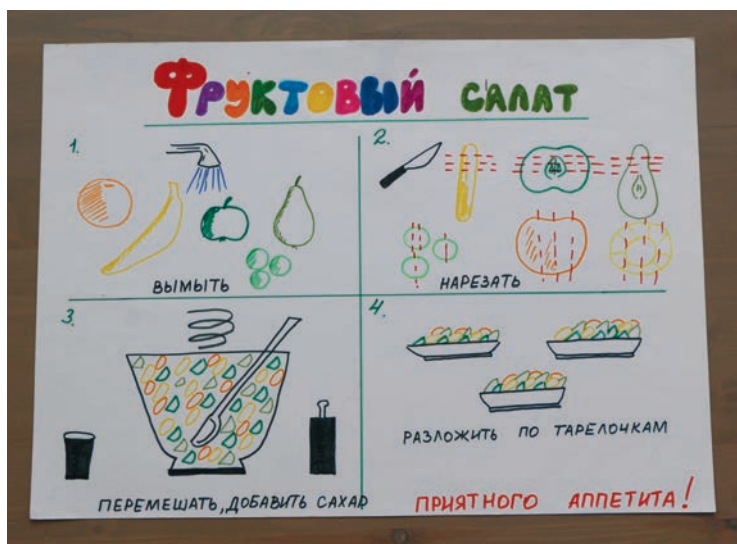 ФРУКТОВЫЙ САЛАТ
1.
ВЫМЫТЬ
2.
НАРЕЗАТЬ
3.
ПЕРЕМЕШАТЬ, ДОБАВИТЬ САХАР
4.
РАЗЛОЖИТЬ ПО ТАРЕЛОЧКАМ
ПРИЯТНОГО АППЕТИТА!